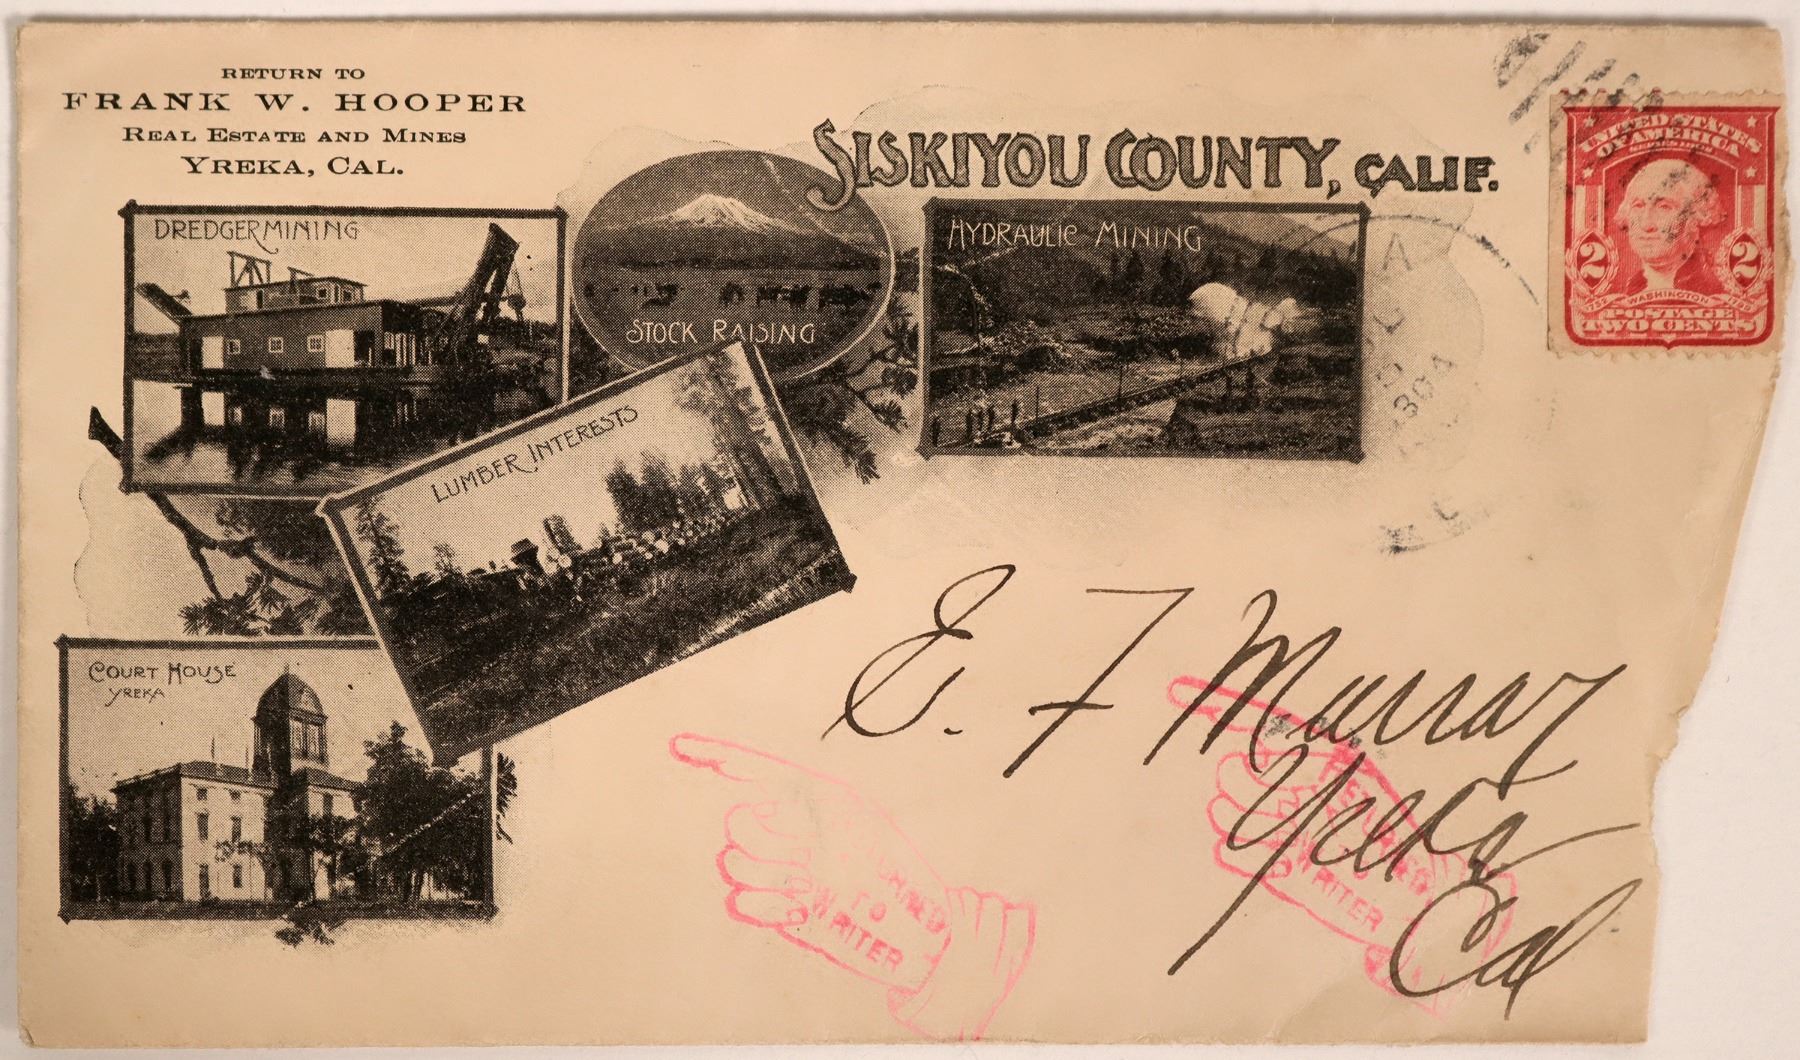 RETURN TO
FRANK W. HOOPER
REAL ESTATE AND MINES
YREKA, CAL.
SISKIYOU COUNTY, CALIF.
DREDGER MINING
STOCK RAISING
HYDRAULIC MINING
LUMBER INTERESTS
COURT HOUSE
YREKA
UNITED STATES
OF AMERICA
SERIES 1902
2 2
WASHINGTON
POSTAGE
TWO CENTS
E. F Murray
Yreka
Cal
RETURNED
TO
WRITER
RETURNED
TO
WRITER